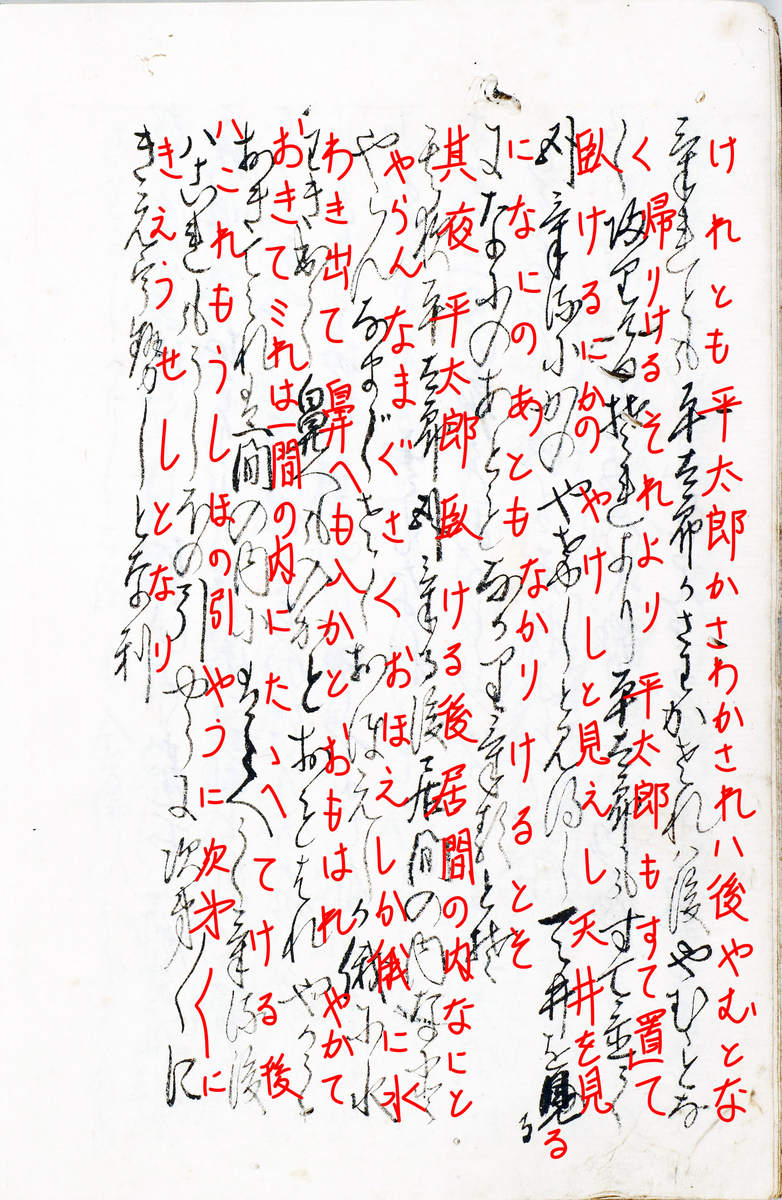 けれとも平太郎かさわかされハ後やむとな
く帰りけるそれより平太郎もすて置て
臥けるにかのやけしと見えし天井を見る
になにのあともなかりけるとそ
其夜平太郎臥ける後居間の内なにと
やらんなまぐさくおほえしか俄に水
わき出て鼻へも入かとおもはれやがて
おきてミれは一間の内にたゝへてける後
ハこれもうしほの引やうに次第〱に
きえうせしとなり